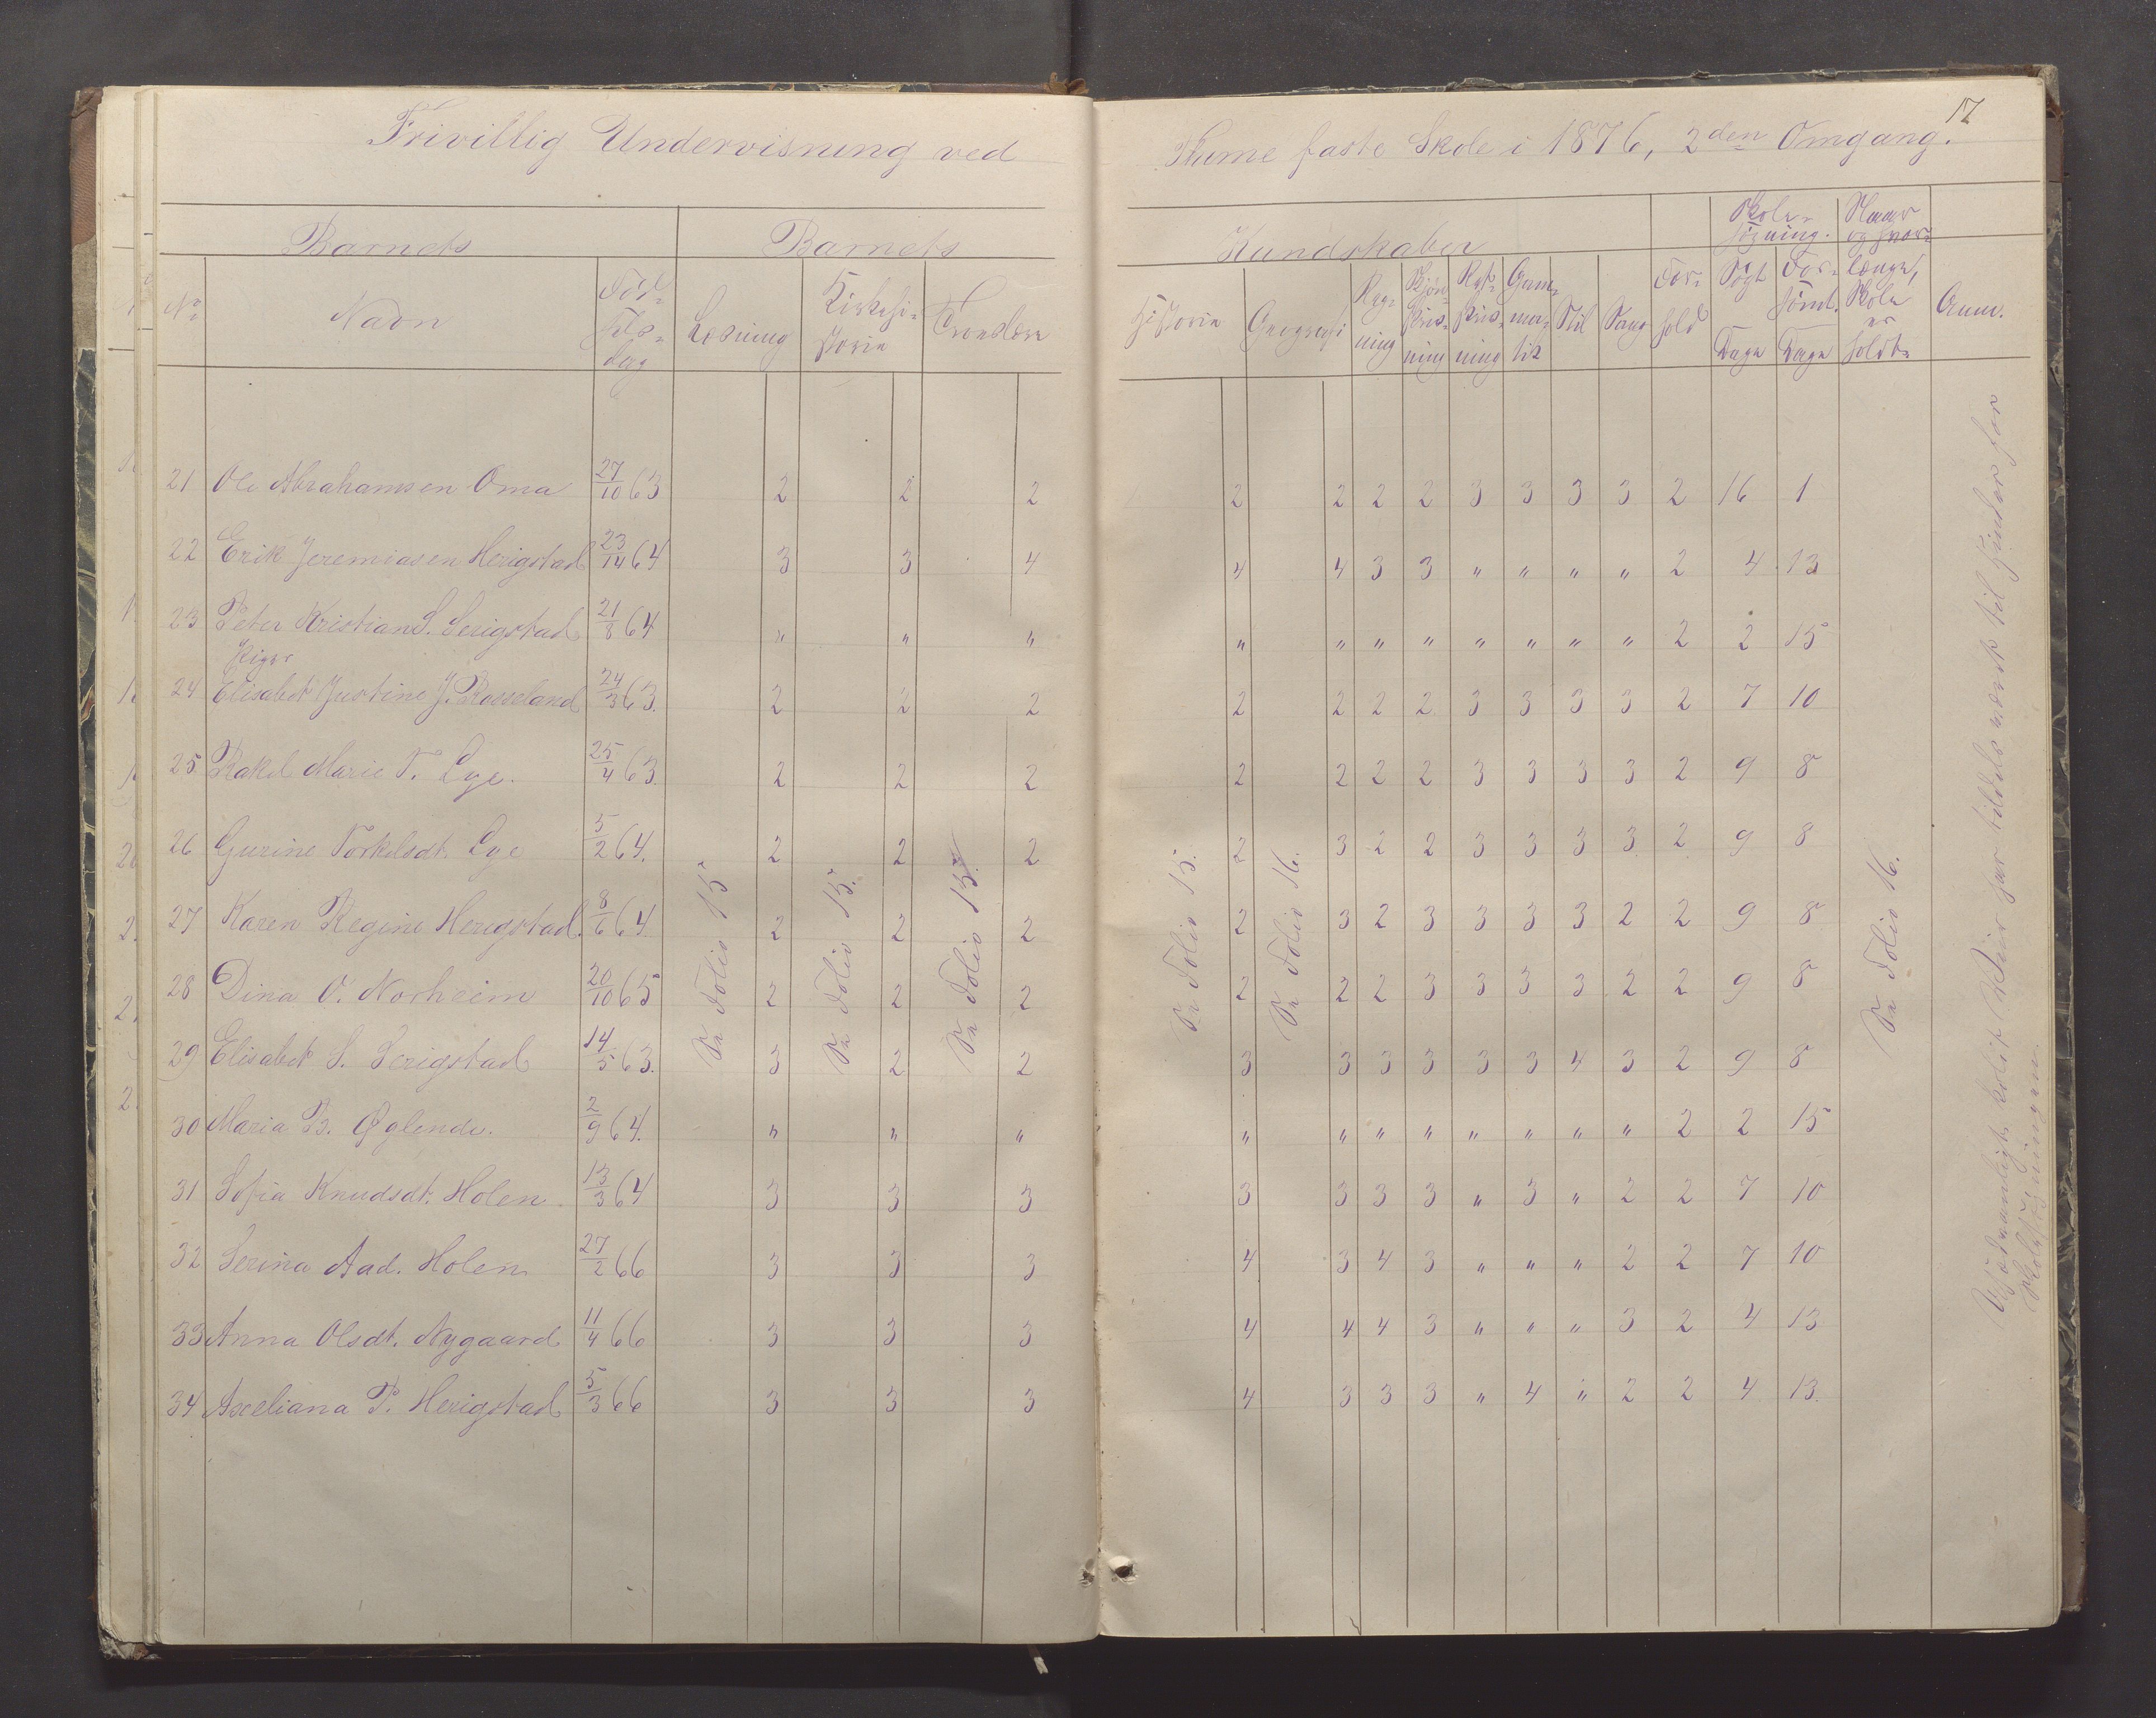 17
Frivillig Undervisning ved Thime faste Skole i 1876, 2den Omgang.
Barnets Barnets Kundskaber Skole-søgning. Naar og hvor-længe, Skole er holdt.
No Navn Fød-sels-dag Læsning Kirkehi-storie Troeslære Historie Geografi Reg-ning Skjøn-skriv-ning Ret-skriv-ning Gram-ma-tik Stil Sang For-hold Søgt Dage For-sømt. Dage Anm.
21 Ole Abrahamsen Oma 27/10 63 2 2 2 2 2 2 2 3 3 3 3 2 16 1
22 Erik Jeremiasen Herigstad 23/14 64 3 3 4 4 4 3 3 " " " " 2 4 13
23 Peter Kristian S. Serigstad 21/8 64 " " " " " " " " " " " 2 2 15
Piger
24 Elisabet Justine J. Rosseland 24/3 63. 2 2 2 2 2 2 2 3 3 3 3 2 7 10
25 Rakel Marie T. Lye. 25/4 63. 2 2 2 2 2 2 2 3 3 3 3 2 9 8
26 Gurine Torkelsdt. Lye 5/2 64. 2 2 2 2 3 2 2 3 3 3 3 2 9 8
27 Karen Regine Herigstad. 8/6 64 2 2 2 2 3 2 3 3 3 3 2 2 9 8
28 Dina O. Norheim 20/10 65 2 2 2 2 2 2 3 3 3 3 2 2 9 8
29 Elisabet S. Serigstad 14/5 63. 3 2 2 3 3 3 3 3 3 4 3 2 9 8
30 Maria B. Øglende. 2/9 64. " " " " " " " " " " " 2 2 15
31 Sofia Knudsdt. Holen. 13/3 64 3 3 3 3 3 3 3 " 3 " 2 2 7 10
32 Serina Aad. Holen 27/2 66 3 3 3 4 3 4 3 " " " 2 2 7 10
33 Anna Olsdt. Nygaard 11/4 66 3 3 3 4 4 4 3 " " " 3 2 4 13
34 Axeliana P. Herigstad 5/3 66 3 3 3 4 3 3 3 " 4 " 2 2 4 13.
Se Folio 15
Se Folio 15.
Se Folio 15.
Se Folio 15.
Se Folio 16.
Se Folio 16.
Veir har tildels været til Hinder for
Skolesøgningen.